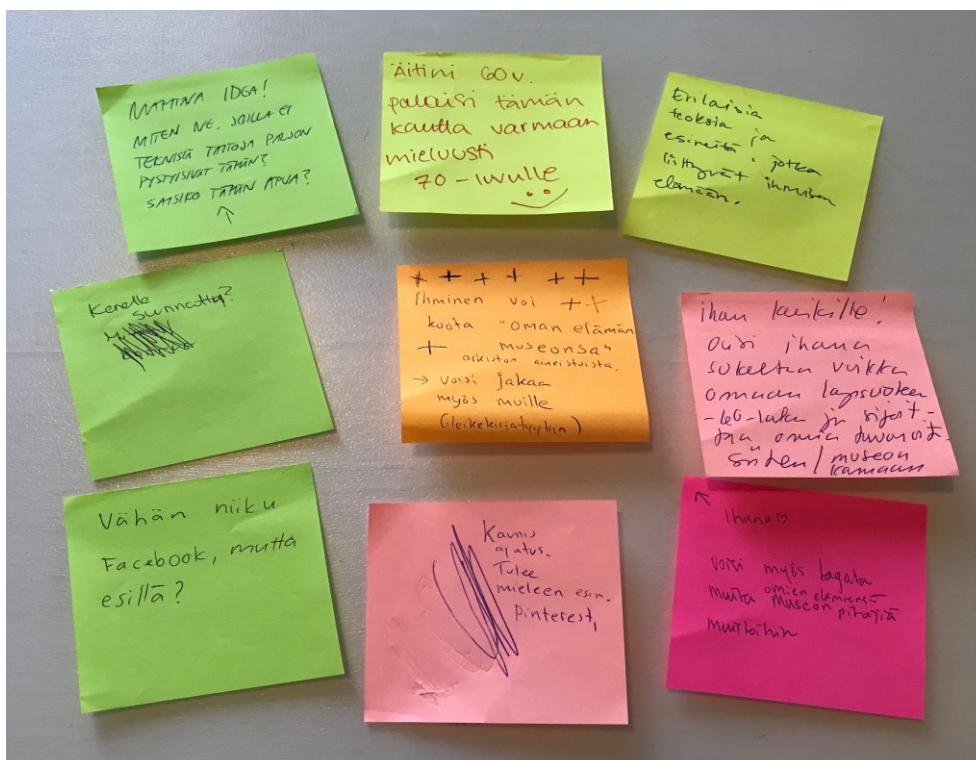 MAHTAVA IDEA!
MITEN NE, JOILLA EI
TEKNISIÄ TAITOJA PALJON
PYSTYISIVÄT TÄHÄN?
SAISIKO TÄHÄN APUA?
Äitini 60 v.
palaisi tämän
kautta varmaan
mieluusti
70-luvulle
Erilaisia
teoksia ja
esineitä jotka
liittyvät ihmisen
elämään.
Kenelle
suunnattu?
Ihminen voi
koota "oman elämän
museonsa"
arkiston aineistoista.
→ voisi jakaa
myös muille
(leikekirjatyyliin)
ihan kaikille!
Olisi ihana
sukeltaa vaikka
omaan lapsuuteen
-60-luku ja
omia
siihen / museon
Vähän niiku
Facebook, mutta
esillä?
Kaunis
ajatus.
Tulee
mieleen esim.
Pinterest,
Ihana ♡
voisi myös tagata
muita omien elämiensä
museon pitäjiä
muistoihin